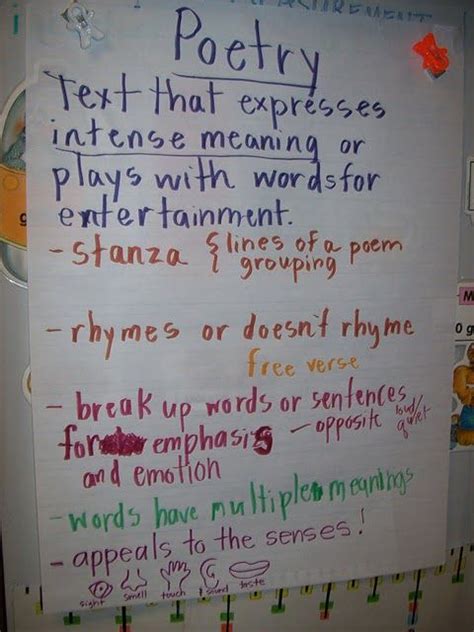 Poetry
Text that expresses
intense meaning or
plays with words for
entertainment.
- stanza { lines of a poem
grouping
- rhymes or doesn't rhyme
free verse
- break up words or sentences
for emphasis - opposite loud/quiet
and emotion
- words have multiple meanings
- appeals to the senses!
sight smell touch sound taste